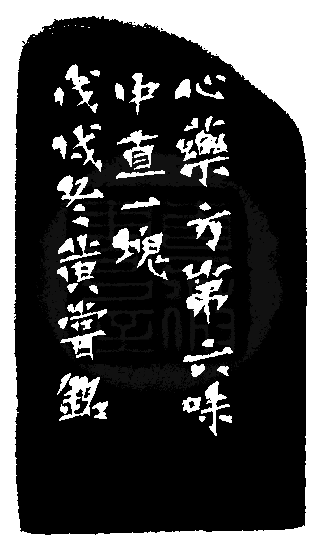 心藥方第六味
中直一塊
戊戌冬黄嘗銘